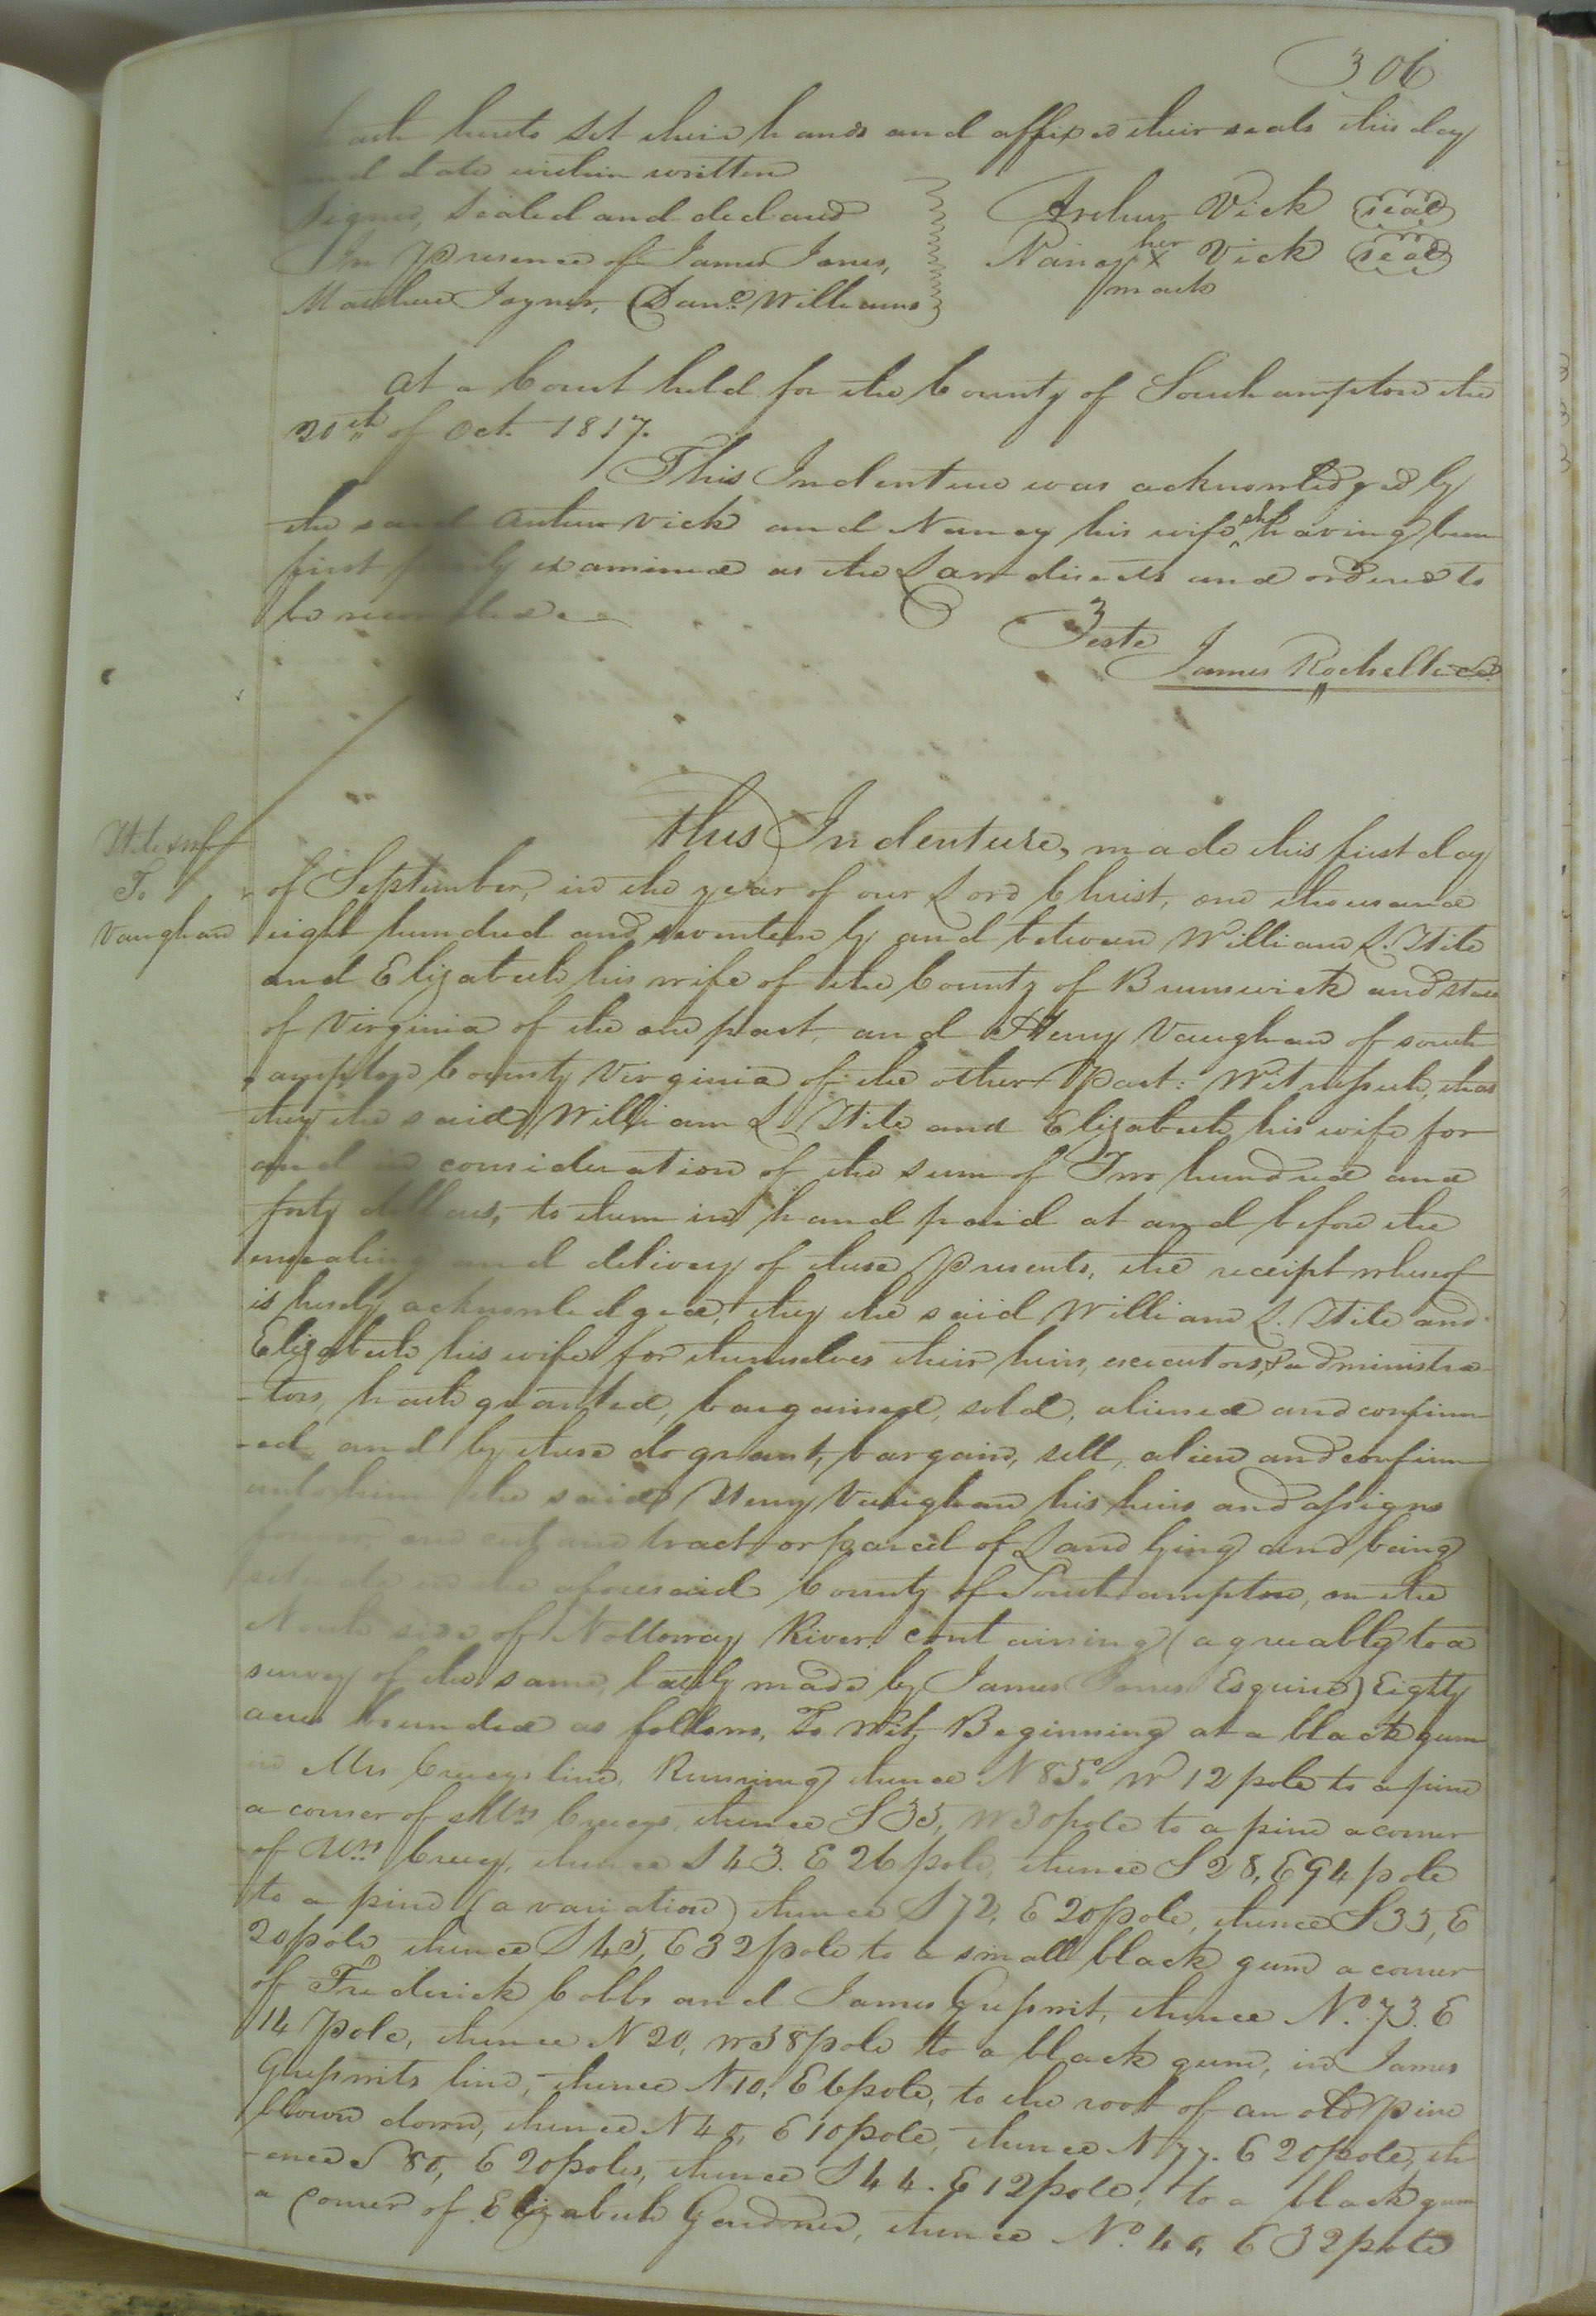 306
hath hereto set their hands and affixed their seals this day
and date within written
Signed, Sealed and declared
In Presence of James Jones,
Mathew Joyner, Danl. Williams
Arthur Vick seal
Nancy her X mark Vick seal
At a Court held for the County of Southampton the
20th of Oct. 1817.
This Indenture was acknowledged by
the said Arthur Vick and Nancy his wife she having been
first privily examined as the Law directs and ordered to
be recorded.
Teste
James Rochelle CC.
Hite & wf
To
Vaughan
This Indenture, made this first day
of September, in the year of our Lord Christ, one thousand
eight hundred and seventeen by and between William L. Hite
and Elizabeth his wife of the County of Brunswick and State
of Virginia of the one part, and Henry Vaughan of south
ampton County Virginia of the other Part: Witnesseth, that
they the said William L. Hite and Elizabeth his wife for
and in consideration of the sum of Two hundred and
forty dollars, to them in hand paid at and before the
ensealing and delivery of these Presents, the receipt whereof
is hereby acknowledged, they the said William L. Hite and
Elizabeth his wife for themselves their heirs, executors, & administra-
-tors, hath granted, bargained, sold, aliened and confirm-
-ed and by these do grant, bargain, sell, alien and confirm
unto him the said Henry Vaughan his heirs and assigns
forever, one certain tract or parcel of Land lying and being
situate in the aforesaid County of Southampton, on the
North side of Nottoway River containing (agreeably to a
survey of the same, lately made by James Jones Esquire) Eighty
acres bounded as follows, To Wit, Beginning at a black gum
in Mrs Creecys line, Running thence N 85° W 12 pole to a pine
a corner of Mrs Creecys, thence S 35, W 30 pole to a pine a corner
of Wm Creecy, thence S 43. E 26 pole, thence S 28, E 94 pole
to a pine (a variation) thence S 72, E 20 pole, thence S 35, E
20 pole thence S 45, E 32 pole to a small black gum a corner
of Frederick Cobbs and James Gresswit, thence No. 73. E
14 Pole, thence N 20, W 38 pole to a black gum, in James
Gresswits line, thence N 10, E 6 pole, to the root of an old Pine
blown down, thence N 40, E 10 pole, thence N 77. E 20 pole, th
-ence S 80, E 20 poles, thence S 44. E 12 pole, to a black gum
a corner of Elizabeth Gardner, thence No. 40, E 32 pole